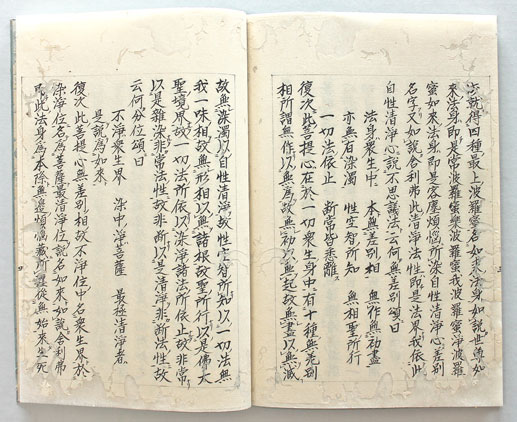 方說得四種最上波羅蜜名如來法身如說世尊如
來法身即是常波羅蜜樂波羅蜜我波羅蜜淨波羅
蜜如來法身即是客塵煩惱所染自性清淨心差別
名字又如說舍利弗此清淨法性即是法界我依此
自性清淨心說不思議法云何無差別頌曰
法身衆生中 本無差別相 無作無初盡
亦無有染濁 性空智所知 無相聖所行
一切法依止 斷常皆悉離
復次此菩提心在於一切衆生身中有十種無差別
相所謂無作以無爲故無初以無起故無盡以無滅
故無染濁以自性清淨故性空智所知以一切法無
我一味相故無形相以無諸根故聖所行以是佛大
聖境界故一切法所依以染淨諸法所依止故非常
以是雜染非常法性故非斷以是清淨非斷法性故
云何分位頌曰
不淨衆生界 染中淨菩薩 最極清淨者
是說爲如來
復次此菩提心無差別相故不淨位中名衆生界於
染淨位名爲菩薩最清淨位說名如來如說舍利弗
即此法身爲本際無邊煩惱藏所纏從無始來生死